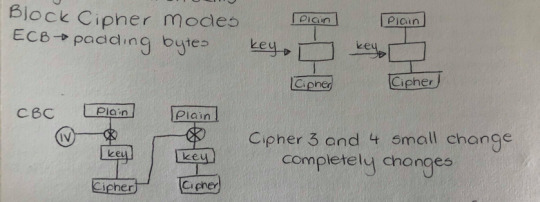 Block Cipher Modes
ECB → padding bytes
Plain Plain
key key
Cipher Cipher
CBC
Plain Plain
IV
key key
Cipher Cipher
Cipher 3 and 4 small change
completely changes